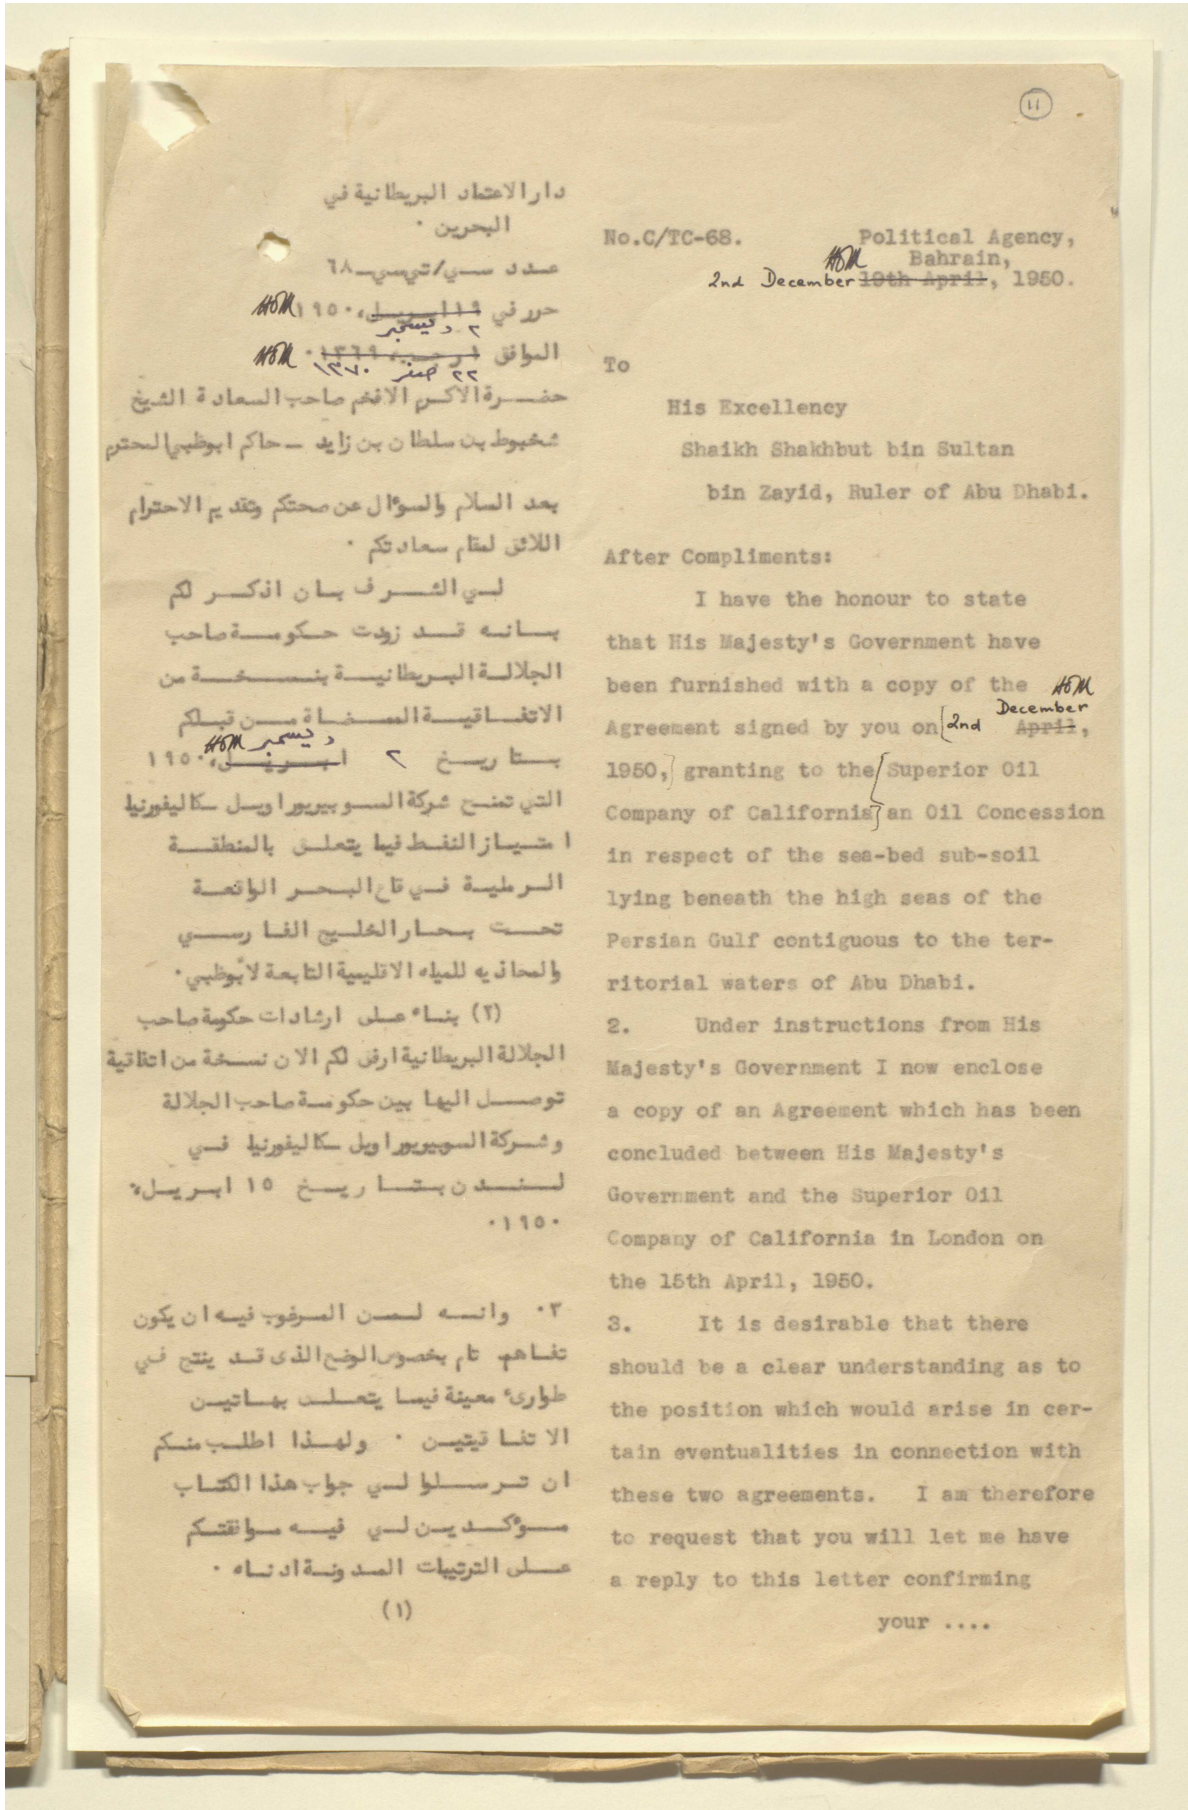 11
دار الاعتماد البريطانية في
البحرين ٠
عدد سي/تي سي-٦٨
حرر في ١٩ ابريل، ١٩٥٠ HOM
٢ ديسمبر
الموافق ١ رجب، ١٣٦٩ ٠ HOM
٢٢ صفر ١٣٧٠
حضرة الاكرم الافخم صاحب السعادة الشيخ
شخبوط بن سلطان بن زايد - حاكم ابوظبي المحترم
بعد السلام والسؤال عن صحتكم وتقديم الاحترام
اللائق لمقام سعادتكم ٠
لي الشرف بان اذكر لكم
بانه قد زودت حكومة صاحب
الجلالة البريطانية بنسخة من
الاتفاقية الممضاة من قبلكم
ديسمبر HOM
بتاريخ ٢ ابريل، ١٩٥٠
التي تمنح شركة السوبيريور اويل كاليفورنيا
امتياز النفط فيما يتعلق بالمنطقة
الرملية في قاع البحر الواقعة
تحت بحار الخليج الفارسي
والمحاذيه للمياه الاقليمية التابعة لابوظبي٠
(٢) بناء على ارشادات حكومة صاحب
الجلالة البريطانية ارفق لكم الان نسخة من اتفاقية
توصل اليها بين حكومة صاحب الجلالة
وشركة السوبيريور اويل كاليفورنيا في
لندن بتاريخ ١٥ ابريل،
١٩٥٠٠
٣٠ وانه لمن المرغوب فيه ان يكون
تفاهم تام بخصوص الوضع الذى قد ينتج في
طوارىء معينة فيما يتعلق بهاتين
الاتفاقيتين ٠ ولهذا اطلب منكم
ان ترسلوا لي جواب هذا الكتاب
مؤكدين لي فيه موافقتكم
على الترتيبات المدونة ادناه ٠
(١)
No.C/TC-68. Political Agency,
HOM Bahrain,
2nd December 19th April, 1950.
To
His Excellency
Shaikh Shakhbut bin Sultan
bin Zayid, Ruler of Abu Dhabi.
After Compliments:
I have the honour to state
that His Majesty's Government have
been furnished with a copy of the HOM
December
Agreement signed by you on [2nd April,
1950,] granting to the [Superior Oil
Company of California] an Oil Concession
in respect of the sea-bed sub-soil
lying beneath the high seas of the
Persian Gulf contiguous to the ter-
ritorial waters of Abu Dhabi.
2. Under instructions from His
Majesty's Government I now enclose
a copy of an Agreement which has been
concluded between His Majesty's
Government and the Superior Oil
Company of California in London on
the 15th April, 1950.
3. It is desirable that there
should be a clear understanding as to
the position which would arise in cer-
tain eventualities in connection with
these two agreements. I am therefore
to request that you will let me have
a reply to this letter confirming
your ....